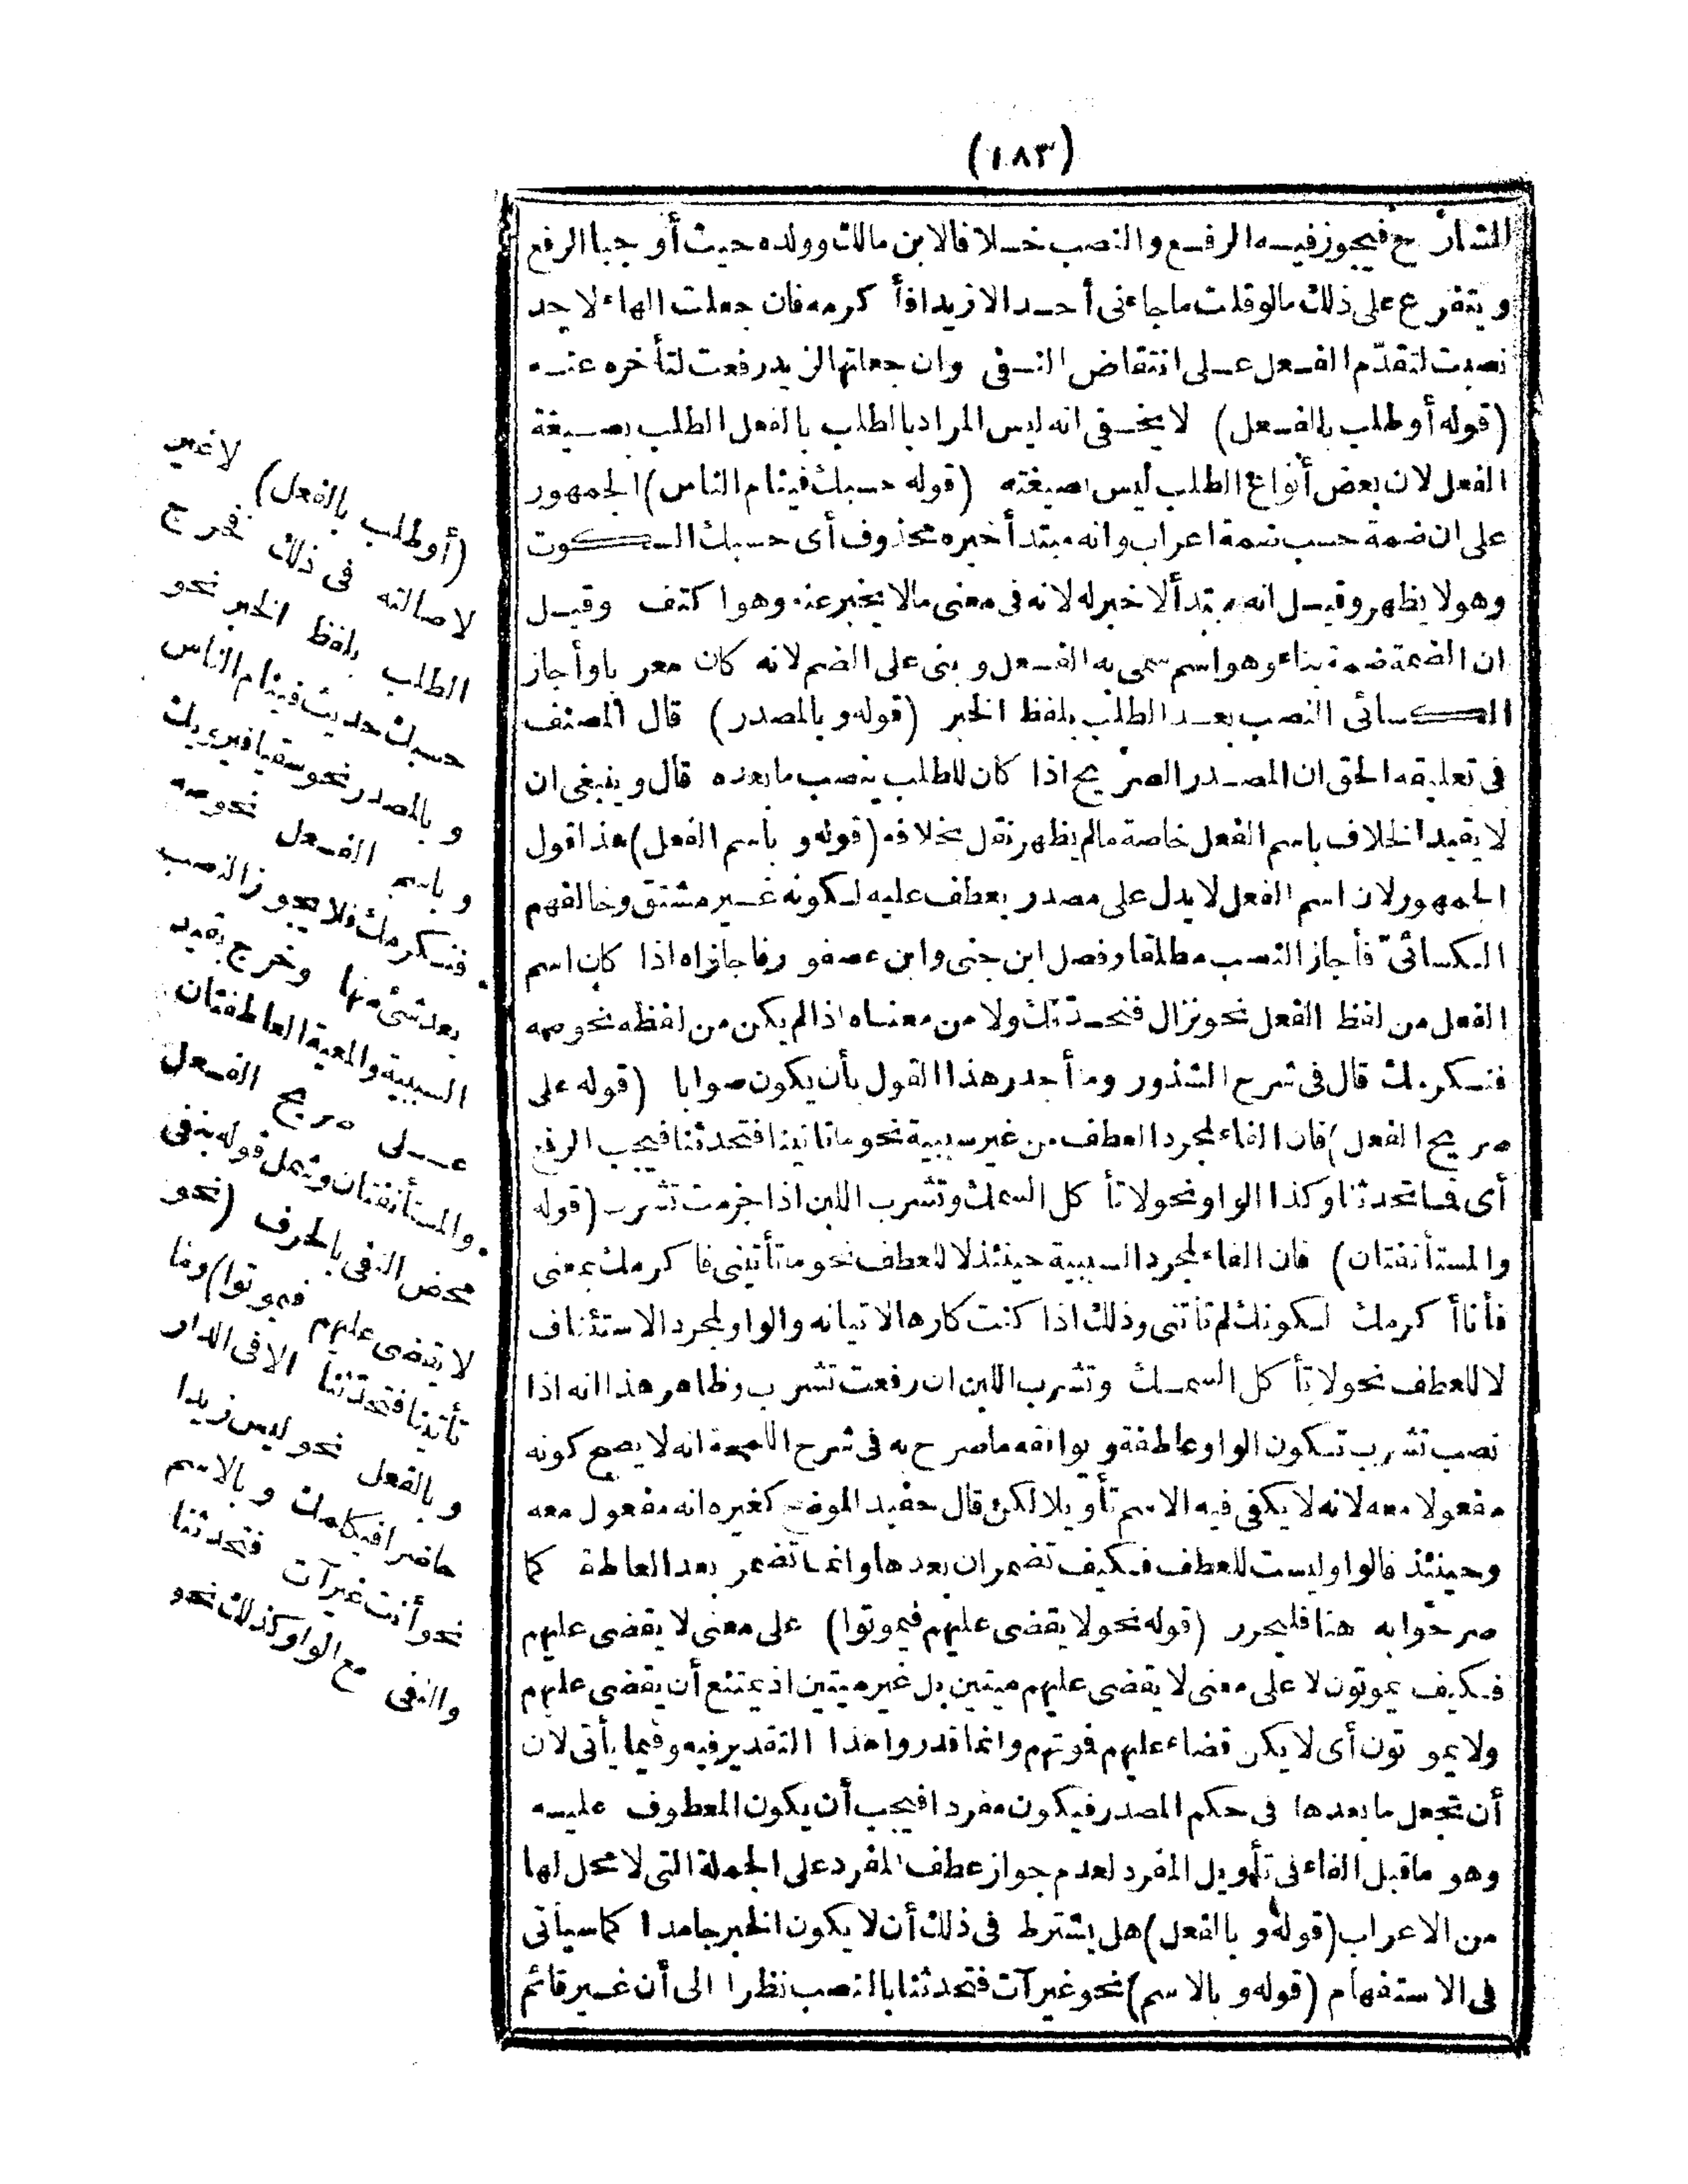 (١٨٣)
الشارح فيجوز فيه الرفع والنصب خلافا لابن مالك وولده حيث أوجبا الرفع
ويتفرع على ذلك مالو قلت ما جاءنى أحد الا زيد افأ كرمه فان جعلت الهاء لاحد
نصبت لتقدّم الفعل على انتقاض النفى وان جعلتها لزيد رفعت لتأخره عنه
(قوله أو طلب بالفعل) لا يخفى انه ليس المراد بالطلب بالفعل الطلب بصيغة
الفعل لان بعض أنواع الطلب ليس بصيغته (قوله حسبك فينام الناس) الجمهور
على ان ضمة حسب ضمة اعراب وانه مبتدأ خبره محذوف أى حسبك السكوت
وهو لا يظهر وقيل انه مبتدأ لا خبر له لانه فى معنى مالا يخبر عنه وهو اكتف وقيل
ان الضمة ضمة بناء وهو اسم سمى به الفعل وبنى على الضم لانه كان معربا وأجاز
الكسائى النصب بعد الطلب بلفظ الخبر (قوله وبالمصدر) قال المصنف
فى تعليقه الحق ان المصدر الصريح اذا كان للطلب ينصب ما بعده قال وينبغى ان
لا يقيد الخلاف باسم الفعل خاصة مالم يظهر نقل بخلافه (قوله وباسم الفعل) هذا قول
الجمهور لان اسم الفعل لا يدل على مصدر يعطف عليه لكونه غير مشتق وخالفهم
الكسائىّ فأجاز النصب مطلقا وفصل ابن جنى وابن عصفور فاجازاه اذا كان اسم
الفعل من لفظ الفعل نحو نزال فنحدثك ولا من معناه اذا لم يكن من لفظه نحو صه
فنكرمك قال فى شرح الشذور وما أجدر هذا القول بأن يكون صوابا (قوله على
صريح الفعل) فان الفاء لمجرد العطف من غير سببية نحو ما تأتينا فتحدثنا فيجب الرفع
أى فما تحدثنا وكذا الواو نحو لا تأكل السمك وتشرب اللبن اذا جزمت تشرب (قوله
والمستأنفتان) فان الفاء لمجرد السببية حينئذ لا للعطف نحو ما تأتينى فاكرمك بمعنى
فأنا أكرمك لكونك لم تأتنى وذلك اذا كنت كارها لاتيانه والواو لمجرد الاستئناف
لا للعطف نحو لا تأكل السمك وتشرب اللبن ان رفعت تشرب وظاهر هذا انه اذا
نصب تشرب تكون الواو عاطفة ويوافقه ما صرح به فى شرح اللمحة انه لا يصح كونه
مفعولا معه لانه لا يكفى فيه الاسم تأويلا لكن قال حفيد الموضح كغيره انه مفعول معه
وحينئذ فالواو ليست للعطف فكيف تضمر ان بعدها وانما تضمر بعد العاطفة كما
صرحوا به هنا فليحرر (قوله نحو لا يقضى عليهم فيموتوا) على معنى لا يقضى عليهم
فكيف يموتون لا على معنى لا يقضى عليهم ميتين بل غير ميتين اذ يمتنع أن يقضى عليهم
ولا يموتون أى لا يكن قضاء عليهم فموتهم وانما قدروا هذا التقدير فيه وفيما يأتى لان
أن تجعل ما بعدها فى حكم المصدر فيكون مفردا فيجب أن يكون المعطوف عليه
وهو ما قبل الفاء فى تأويل المفرد لعدم جواز عطف المفرد على الجملة التى لا محل لها
من الاعراب (قوله وبالفعل) هل يشترط فى ذلك أن لا يكون الخبر جامدا كما سيأتى
فى الاستفهام (قوله وبالاسم) نحو غير آت فتحدثنا بالنصب نظرا الى أن غير قائم
(أو طلب بالفعل) لا غير
لاصالته فى ذلك فخرج
الطلب بلفظ الخبر نحو
حسبك حديث فينام الناس
وبالمصدر نحو سقيا فيرويك
وباسم الفعل نحو صه
فنكرمك فلا يجوز النصب
بعد شئ منها وخرج بقيد
السببية والمعية العاطفتان
على صريح الفعل
والمستأنفتان وشمل قوله بنفى
محض النفى بالحرف (نحو
لا يقضى عليهم فيموتوا) وما
تأتينا فتحدثنا الا فى الدار
وبالفعل نحو ليس زيدا
حاضرا فيكلمك وبالاسم
نحو أنت غير آت فتحدثنا
والنفى مع الواو كذلك نحو